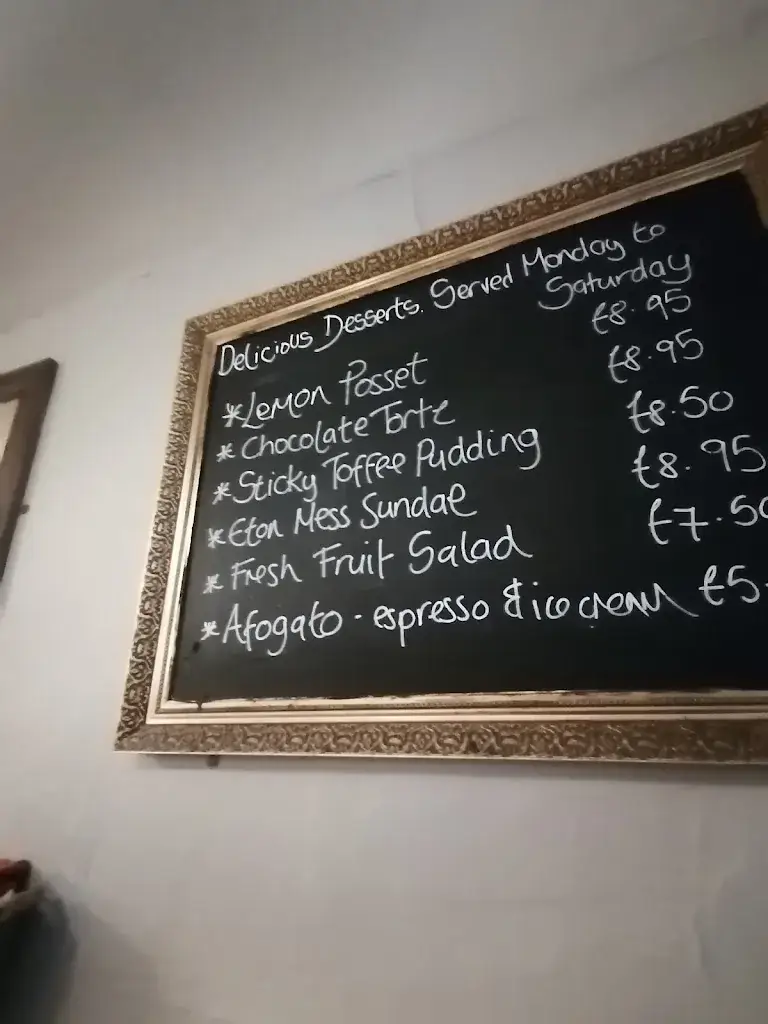 Delicious Desserts. Served Monday to
Saturday
*Lemon Posset £8.95
*Chocolate Torte £8.95
*Sticky Toffee Pudding £8.50
*Eton Mess Sundae £8.95
*Fresh Fruit Salad £7.50
*Afogato - espresso & ice cream £5.